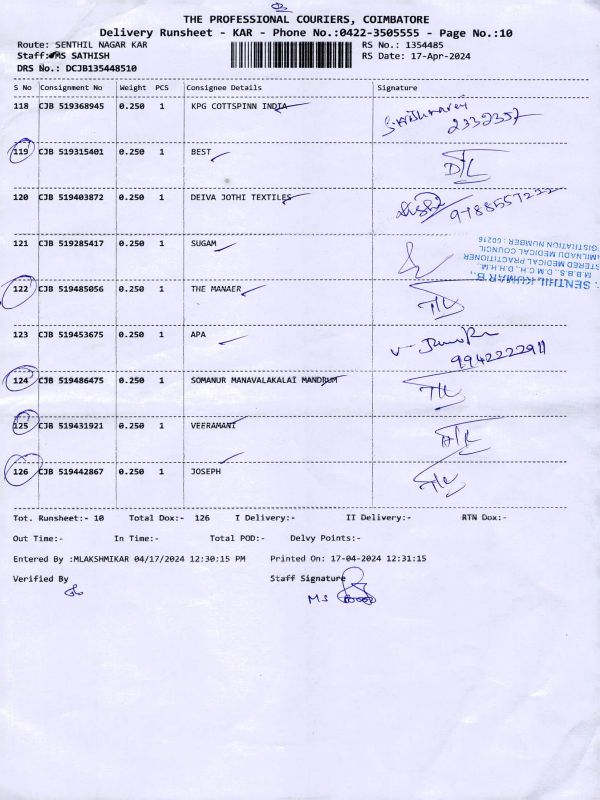 THE PROFESSIONAL COURIERS, COIMBATORE
Delivery Runsheet - KAR - Phone No.:0422-3505555 - Page No.:10
Route: SENTHIL NAGAR KAR RS No.: 1354485
Staff: MS SATHISH RS Date: 17-Apr-2024
DRS No.: DCJB135448510
S No Consignment No Weight PCS Consignee Details Signature
118 CJB 519368945 0.250 1 KPG COTTSPINN INDIA
2332357
119 CJB 519315401 0.250 1 BEST D/L
120 CJB 519403872 0.250 1 DEIVA JOTHI TEXTILES
121 CJB 519285417 0.250 1 SUGAM
. SENTHIL KUMAR B.
M.B.B.S., D.M.C.H., D.H.H.M.,
STERED MEDICAL PRACTITIONER
AMILNADU MEDICAL COUNCIL
GISTRATION NUMBER : 60216
122 CJB 519485056 0.250 1 THE MANAER T/L
123 CJB 519453675 0.250 1 APA
9942222911
124 CJB 519486475 0.250 1 SOMANUR MANAVALAKALAI MANDRUM T/L
125 CJB 519431921 0.250 1 VEERAMANI
126 CJB 519442867 0.250 1 JOSEPH T/L
Tot. Runsheet:- 10 Total Dox:- 126 I Delivery:- II Delivery:- RTN Dox:-
Out Time:- In Time:- Total POD:- Delvy Points:-
Entered By :MLAKSHMIKAR 04/17/2024 12:30:15 PM Printed On: 17-04-2024 12:31:15
Verified By Staff Signature
MS